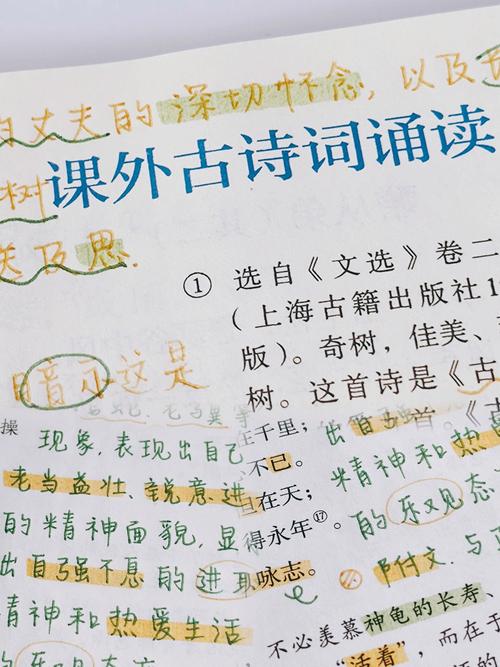 白丈夫的深切怀念，以及
课外古诗词诵读
树
及思.
① 选自《文选》卷二
（上海古籍出版社1
版）。奇树，佳美、
树。这首诗是《古
暗示这是
操
现象，表现出自己
老当益壮、锐意进
的精神面貌，显
出自强不息的进取
精神和热爱生活
在千里；
不已。
在天；
得永年⑰。
咏志。
出自
首。《
精神和热
的乐观态
附文.与
不必羡慕神龟的长寿、
“活着”，而在于